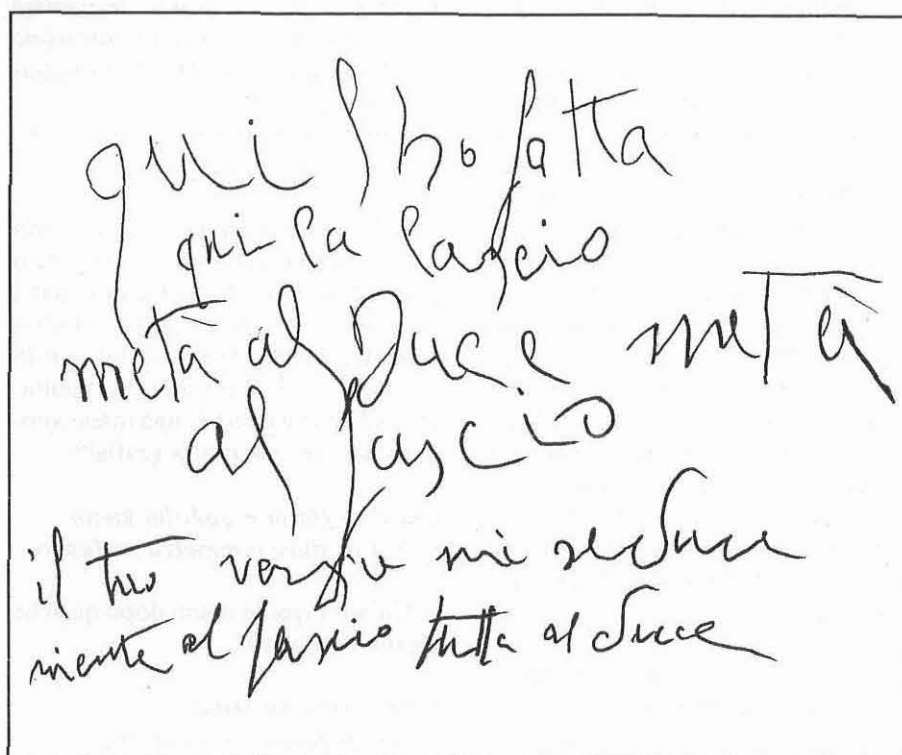 qui l'ho fatta
qui la lascio
metà al Duce metà
al fascio
il tuo verso mi seduce
niente al fascio tutta al duce